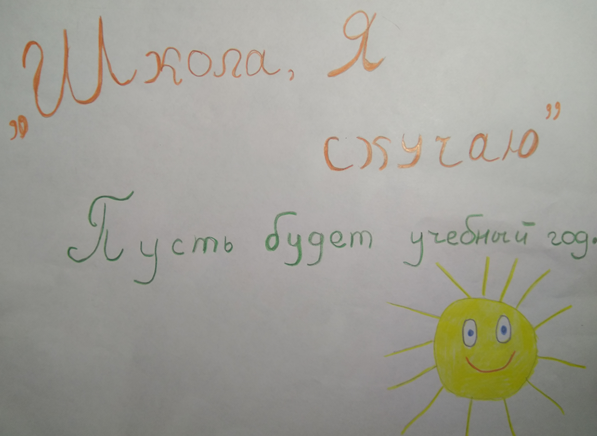 „Школа, Я
скучаю”
Пусть будет учебный год.